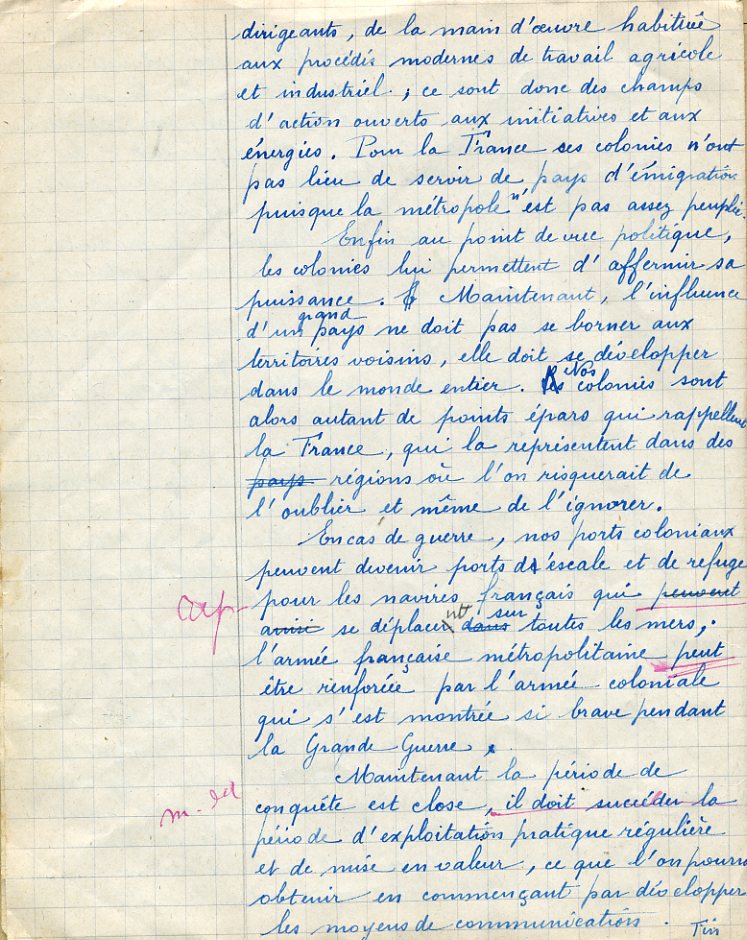 dirigeants, de la main d'œuvre habituée
aux procédés modernes de travail agricole
et industriel ; ce sont donc des champs
d'action ouverts aux initiatives et aux
énergies. Pour la France ses colonies n'ont
pas lieu de servir de pays d'émigration
puisque la métropole n'est pas assez peuplée.
Enfin au point de vue politique,
les colonies lui permettent d'affermir sa
puissance. Maintenant, l'influence
d'un grand pays ne doit pas se borner aux
territoires voisins, elle doit se développer
dans le monde entier. Nos colonies sont
alors autant de points épars qui rappellent
la France, qui la représentent dans des
pays régions où l'on risquerait de
l'oublier et même de l'ignorer.
En cas de guerre, nos ports coloniaux
peuvent devenir ports d'escale et de refuge
pour les navires français qui peuvent
ainsi se déplacent dans sur toutes les mers,
l'armée française métropolitaine peut
être renforcée par l'armée coloniale
qui s'est montrée si brave pendant
la Grande Guerre.
Maintenant la période de
m. dd
conquête est close, il doit succéder la
période d'exploitation pratique régulière
et de mise en valeur, ce que l'on pourra
obtenir en commençant par développer
les moyens de communication.